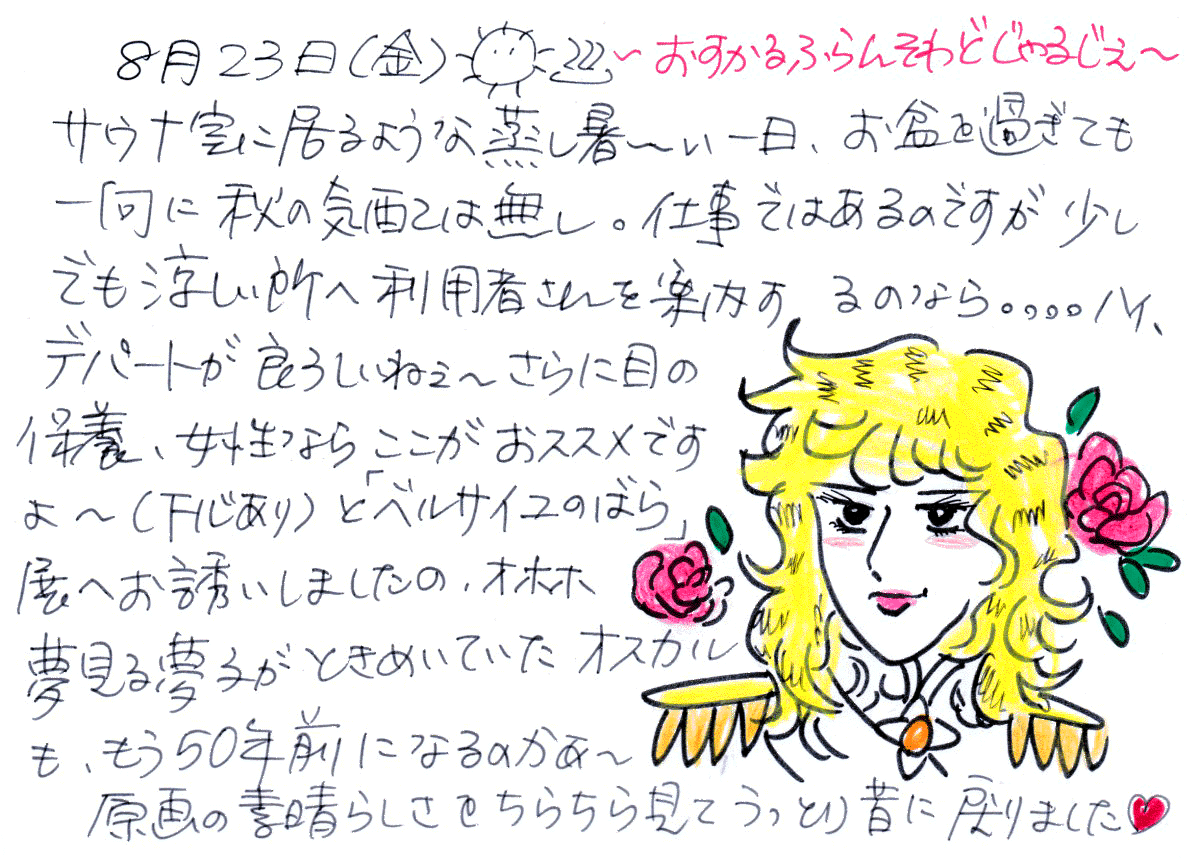 8月23日(金) ～おすかるふらんそわどじゃるじぇ～
サウナ室に居るような蒸し暑～い一日、お盆を過ぎても
一向に秋の気配は無し。仕事ではあるのですが少し
でも涼しい所へ利用者さんを案内するのなら。。。。ハイ、
デパートが良ろしいねぇ～さらに目の
保養、女性ならここがおススメです
よ～(下心あり)と「ベルサイユのばら」
展へお誘いしましたの、オホホ
夢見る夢子がときめいていたオスカル
も、もう50年前になるのかぁ～
原画の素晴らしさをちらちら見てうっとり昔に戻りました